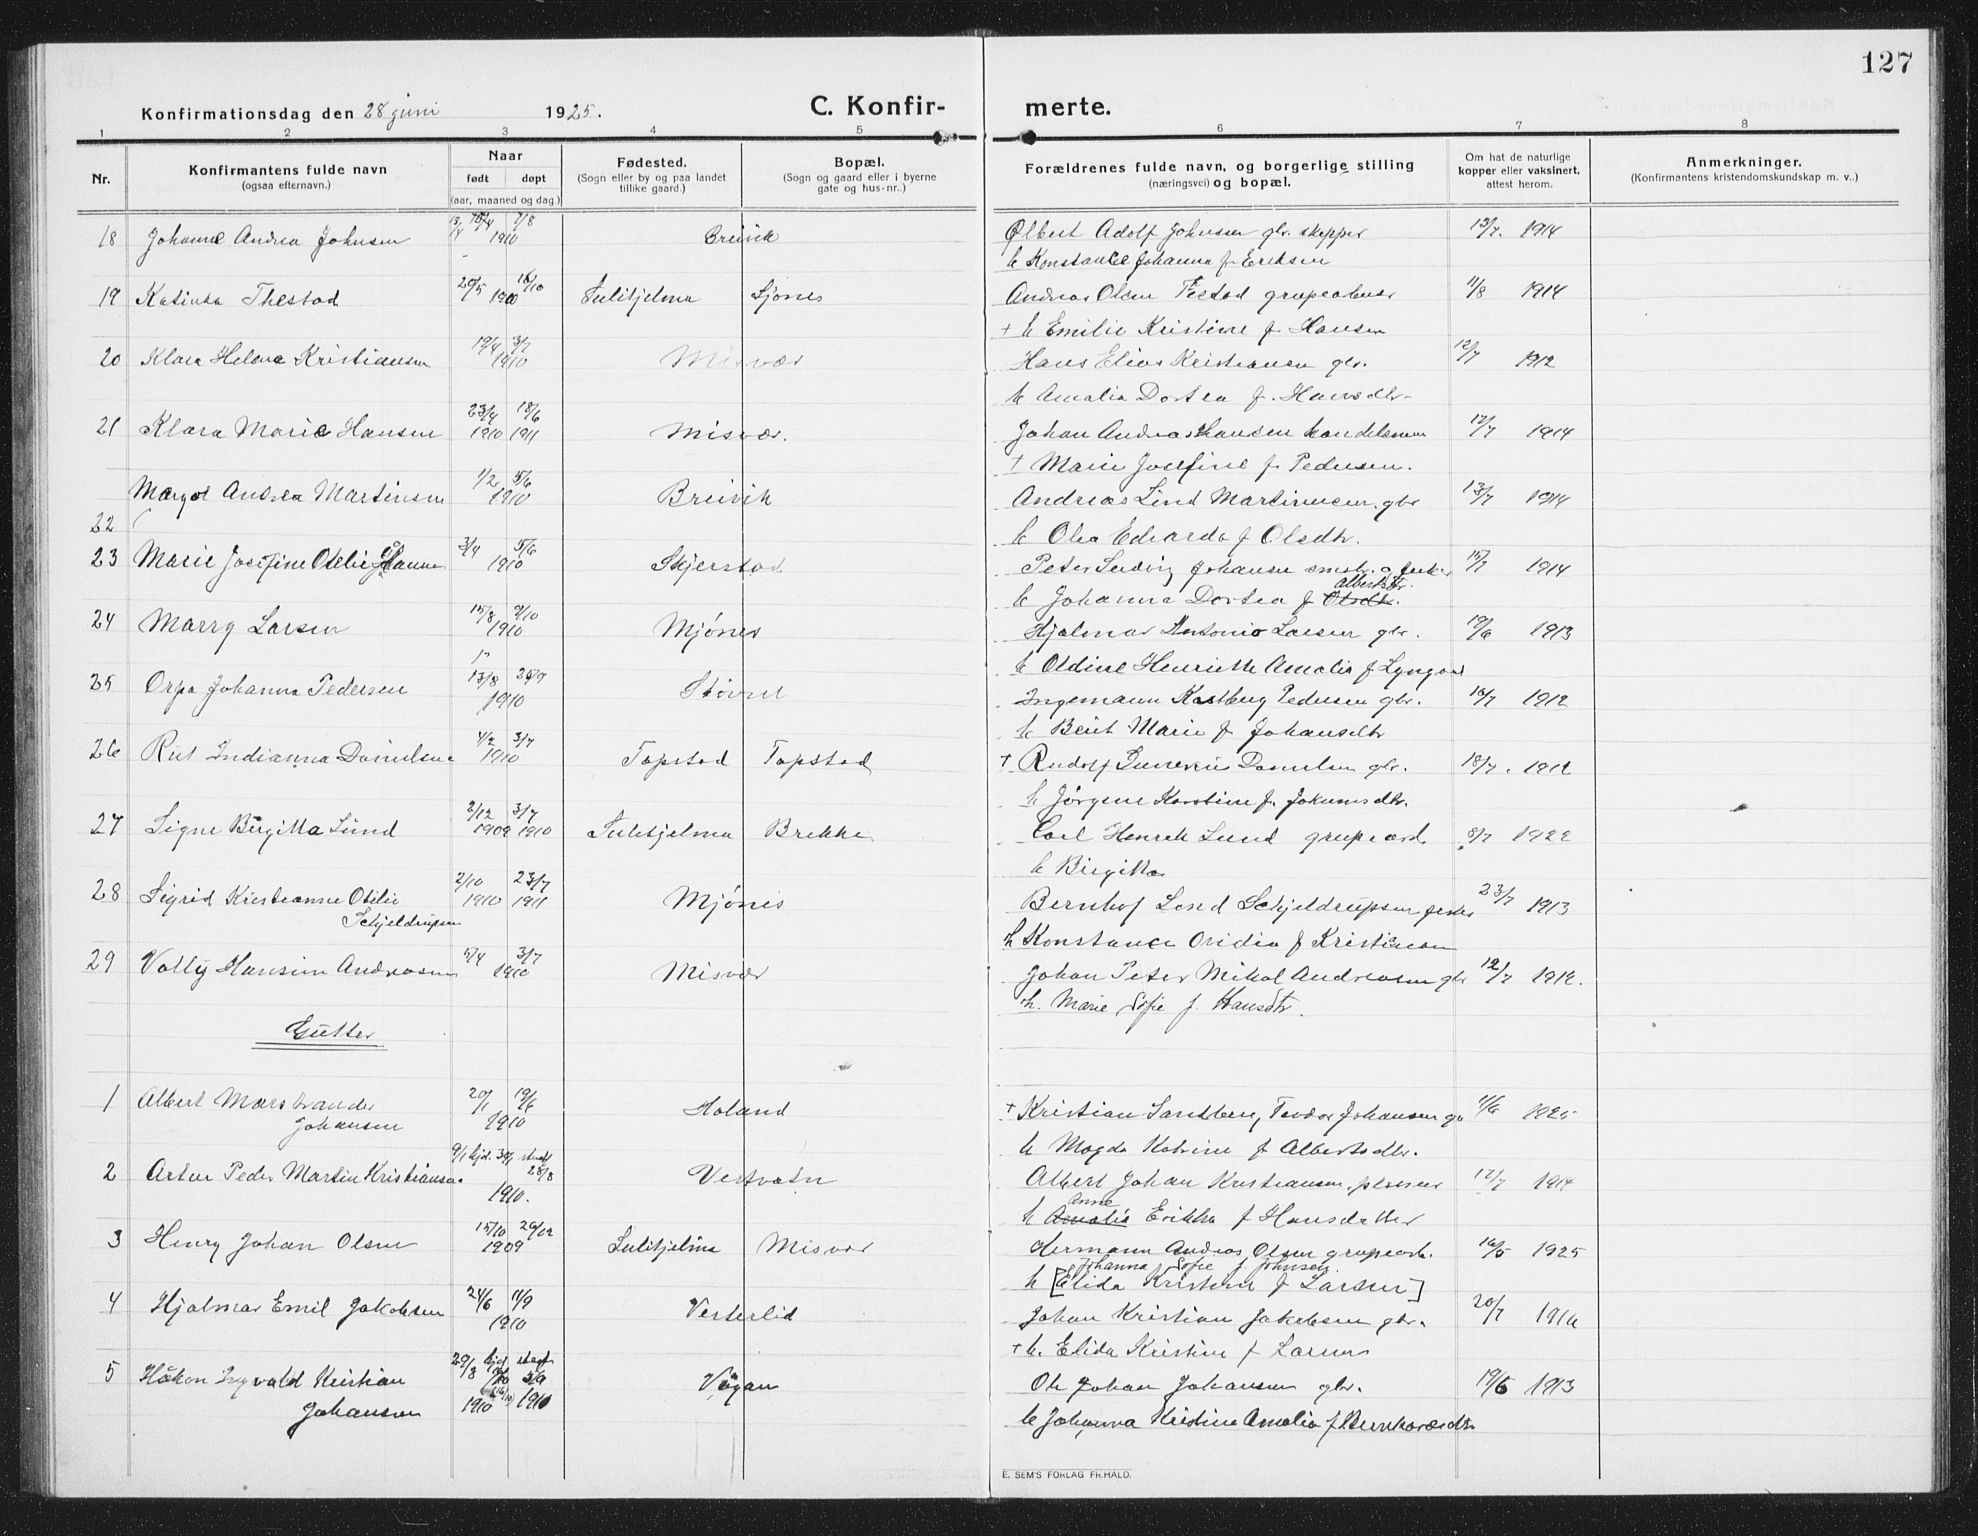 127
Konfirmationsdag den 28 juni 1925.
C. Konfirmerte.
1 2 3 4 5 6 7 8
Nr.
Konfirmantens fulde navn
(ogsaa efternavn.)
Naar
født døpt
(aar, maaned og dag.)
Fødested.
(Sogn eller by og paa landet
tillike gaard.)
Bopæl.
(Sogn og gaard eller i byerne
gate og hus-nr..)
Forældrenes fulde navn, og borgerlige stilling
(næringsvei) og bopæl.
Om hat de naturlige
kopper eller vaksinert,
attest herom.
Anmerkninger.
(Konfirmantens kristendomskundskap m. v..)
18 Johanne Andrea Johnsen 7/8 1910 Breivik Ølbert Adolf Johnsen gbr. skipper 13/7. 1914
h Konstance Johanna f Eriksen
19 Katinka Thestad 20/5 16/10 1910 Sulitjelma Sjønes Andreas Olsen Testad grupearb 11/8 1914
+ h Emilie Kristine f Hansen
20 Klara Helena Kristiansen 19/4 3/7 1910 Misvær Hans Elias Kristiansen gbr. 12/7 1912
h Amalia Dortea f. Hansdtr.
21 Klara Marie Hansen 23/4 18/6 1910 1911 Misvær. Johan Andreas Hansen handelsmann 12/7 1914
+ Marie Josefine f Pedersen.
22 Margot Andrea Martinsen 1/2 5/6 1910 Breivik Andreas Lind Martinussen gbr 13/7 1914
h Olea Edvarda f Olsdtr.
23 Marie Josefine Otelie 3/4 5/6 1910 Skjerstad Peter Ludvig Johansen smbr. o fisker 15/7 1914
h Johanna Dortea f Olsdtr. Albertsdtr.
24 Marry Larsen 15/8 9/10 1910 Mjønes Hjalmar Antonio Larsen gbr. 19/6 1913
h Oldine Henriette Amalia f Lyngaas
25 Orpa Johanna Pedersen 13/8 25/9 1910 Støvset Ingemann Kastberg Pedersen gbr. 16/7 1912
h Berit Marie f Johansdtr
26 Rut Indianna Danielsen 4/2 3/7 1910 Tapstad Tapstad + Rudolf Danielsen gbr. 18/7. 1912
h Jørgine Karstine f. Johansdtr.
27 Signe Birgitta Lund 2/12 3/7 1909 1910 Sulitjelma Brekke Carl Henrik Lund grupearb. 8/7 1922
h Birgitta
28 Sigrid Kristianne Otilie 2/10 23/7 1910 1911 Mjønes Bernhof Lend Schjeldrupsen fisker 23/7 1913
Schjeldrupsen
h Konstance Ovidia f Kristiansen
29 Vally Hansine Andreasen 5/4 3/7 1910 Misvær Johan Peter Mikal Andreasen gbr 12/7 1912.
h. Marie Sofie f. Hansdtr.
Gutter
1 Albert Marstrander 20/1 19/6 1910 Holand + Kristian Sandberg Teodor Johansen gbr 11/6 1925
Johansen
h Magda Katrine f Albertsdtr.
2 Artur Peder Martin Kristiansen 9/1 hjd. stadf 28/8 1910. Vestvatn Albert Johan Kristiansen 12/7 1914
h Amalia Anna Erikka f Hansdatter
3 Henry Johan Olsen 15/10 26/12 1909 Sulitjelma Misvær Hermann Andreas Olsen grupearb. 16/5 1925
Johanna Sofie f. Johnsen.
h [Elida Kristine f Larsen]
4 Hjalmar Emil Jakobsen 24/6 11/9 1910 Vesterlid Johan Kristian Jakobsen gbr. 20/7 1910
+ h. Elida Kristine f Larsen
5 Håkon Ingvald Kristian 29/8 hjd stadf 1910 1910 Vågan Ole Johan Johansen gbr. 19/5 1913
Johansen
h Johanna Kristine Amalia f Bernhardsdtr.
E. SEM'S FORLAG FR.HALD.